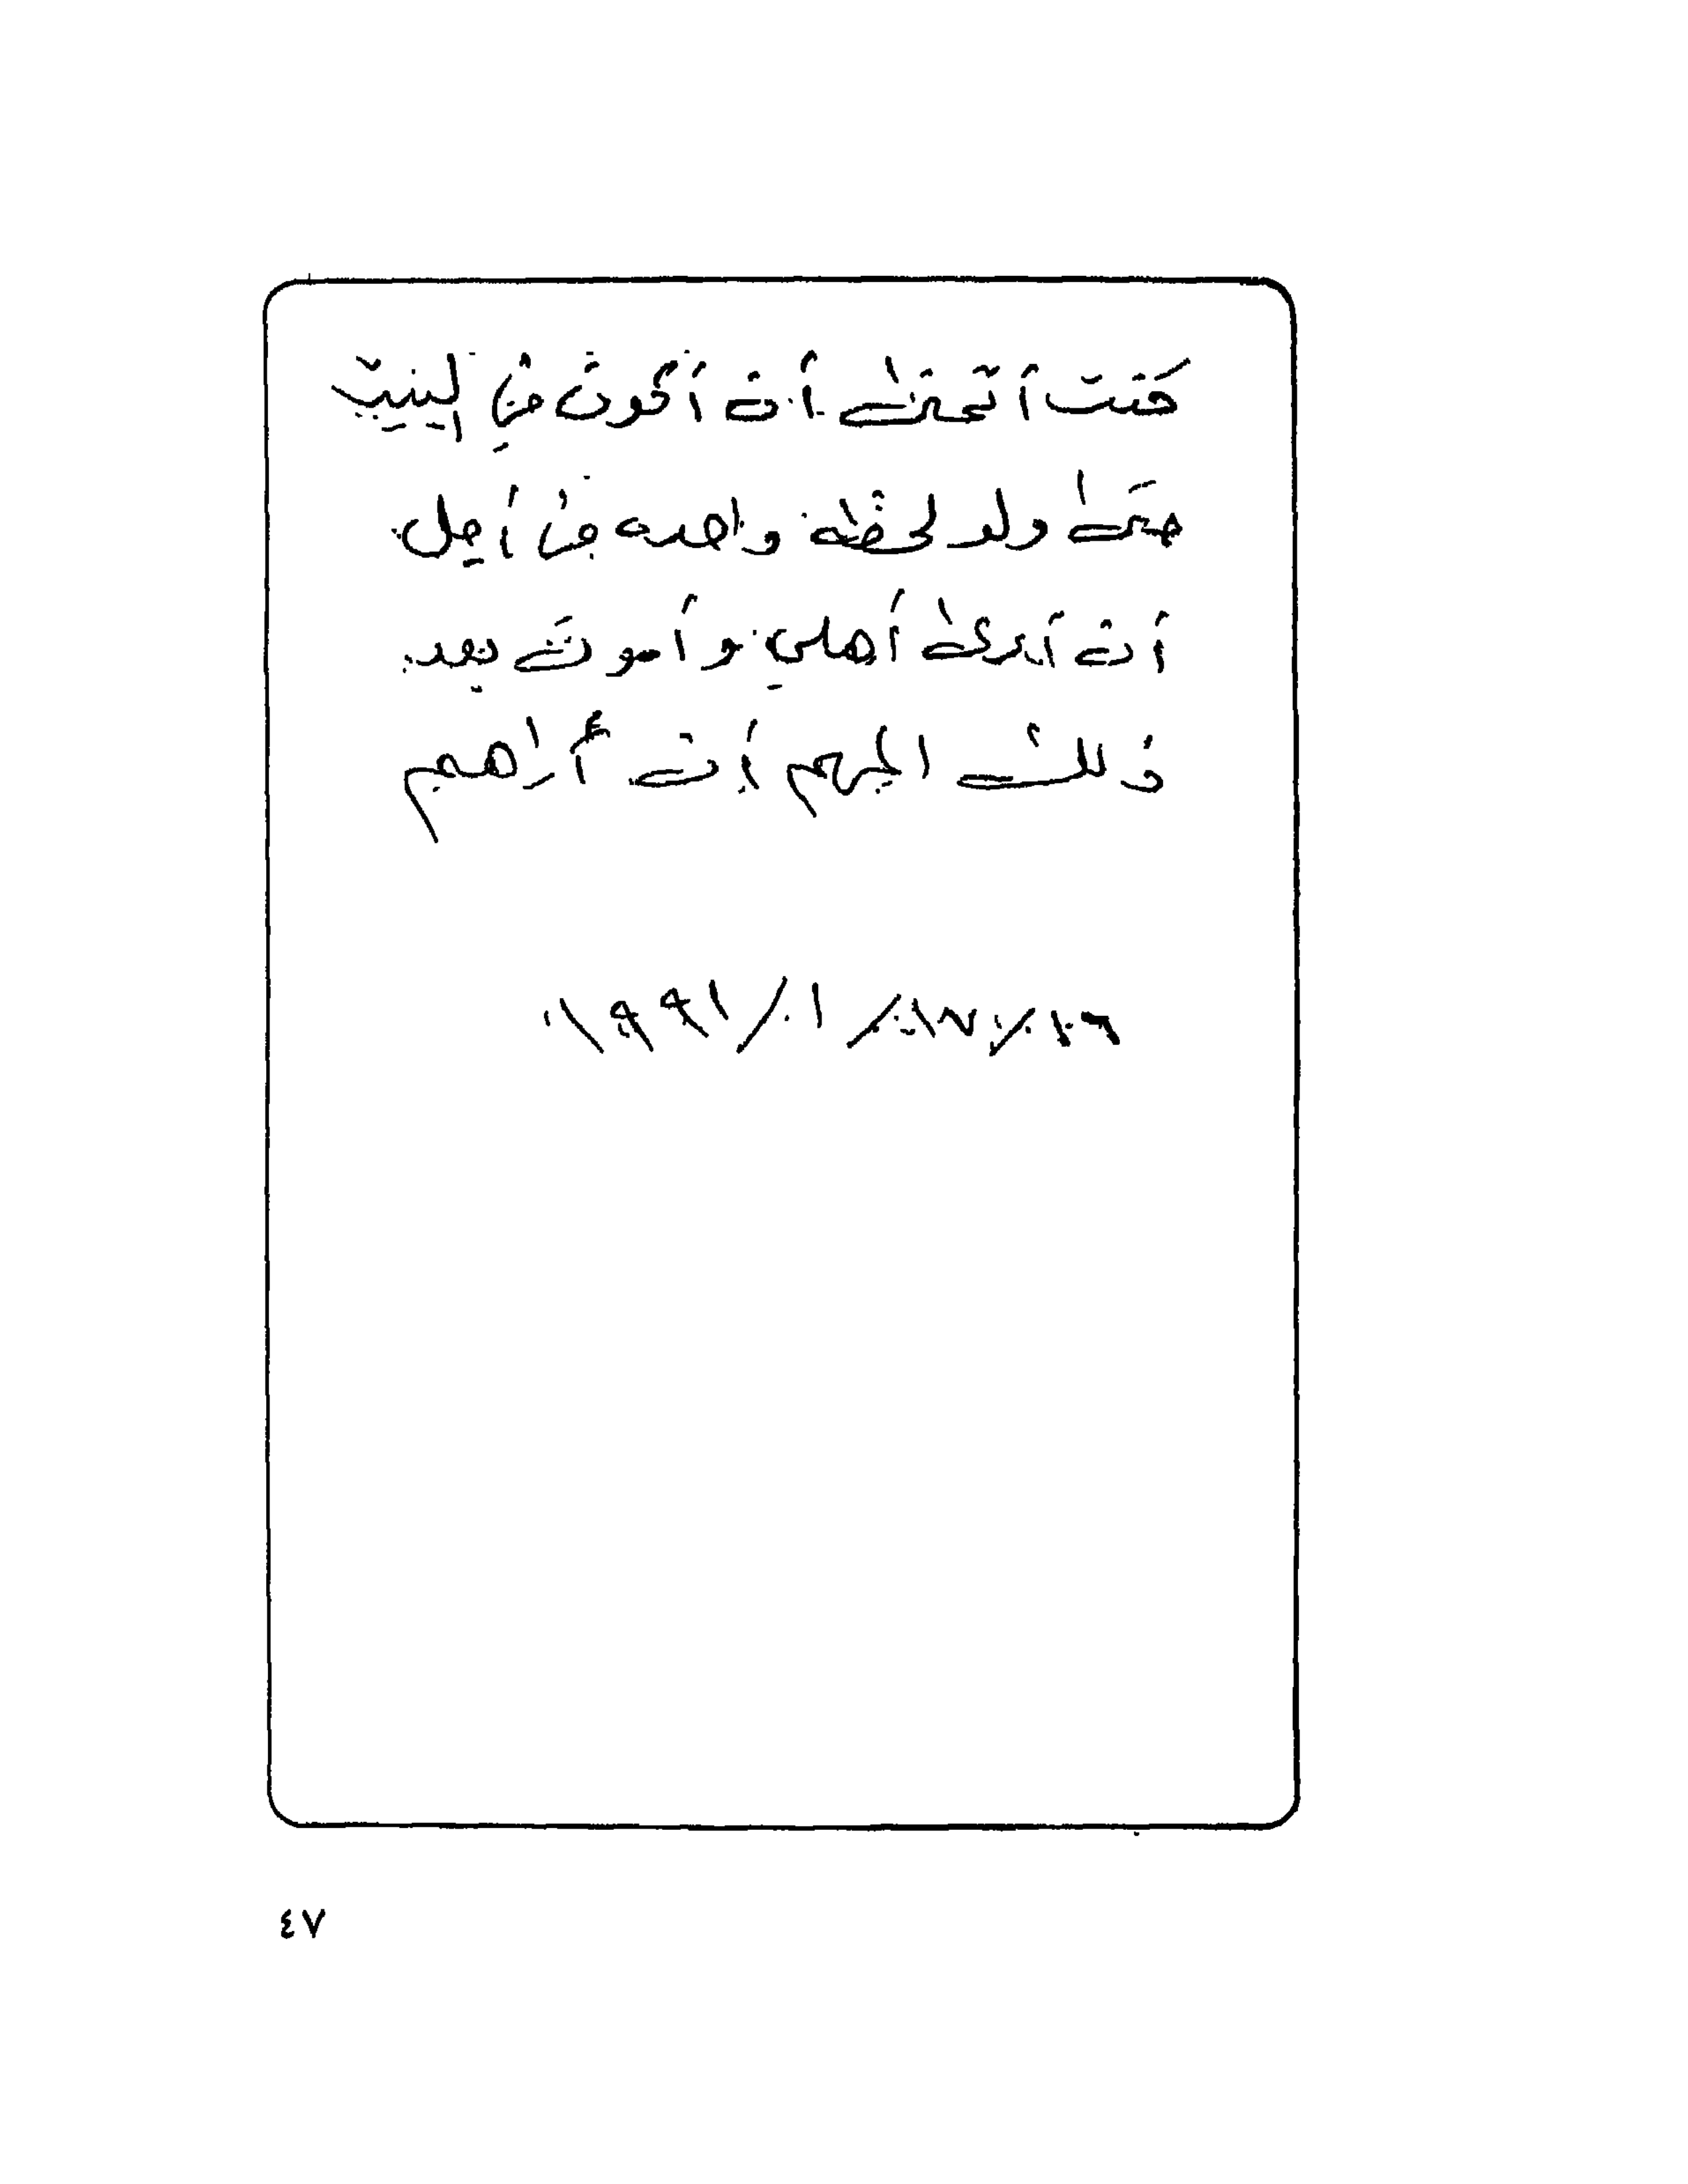 كنت أتمنى أن أكون في البيت
حتى ولو لحظة واحده من أجل
أن أرى أهلي وأموت بعد
ذلك المهم أن أراهم
١٩٩١/١/١٧
٤٧